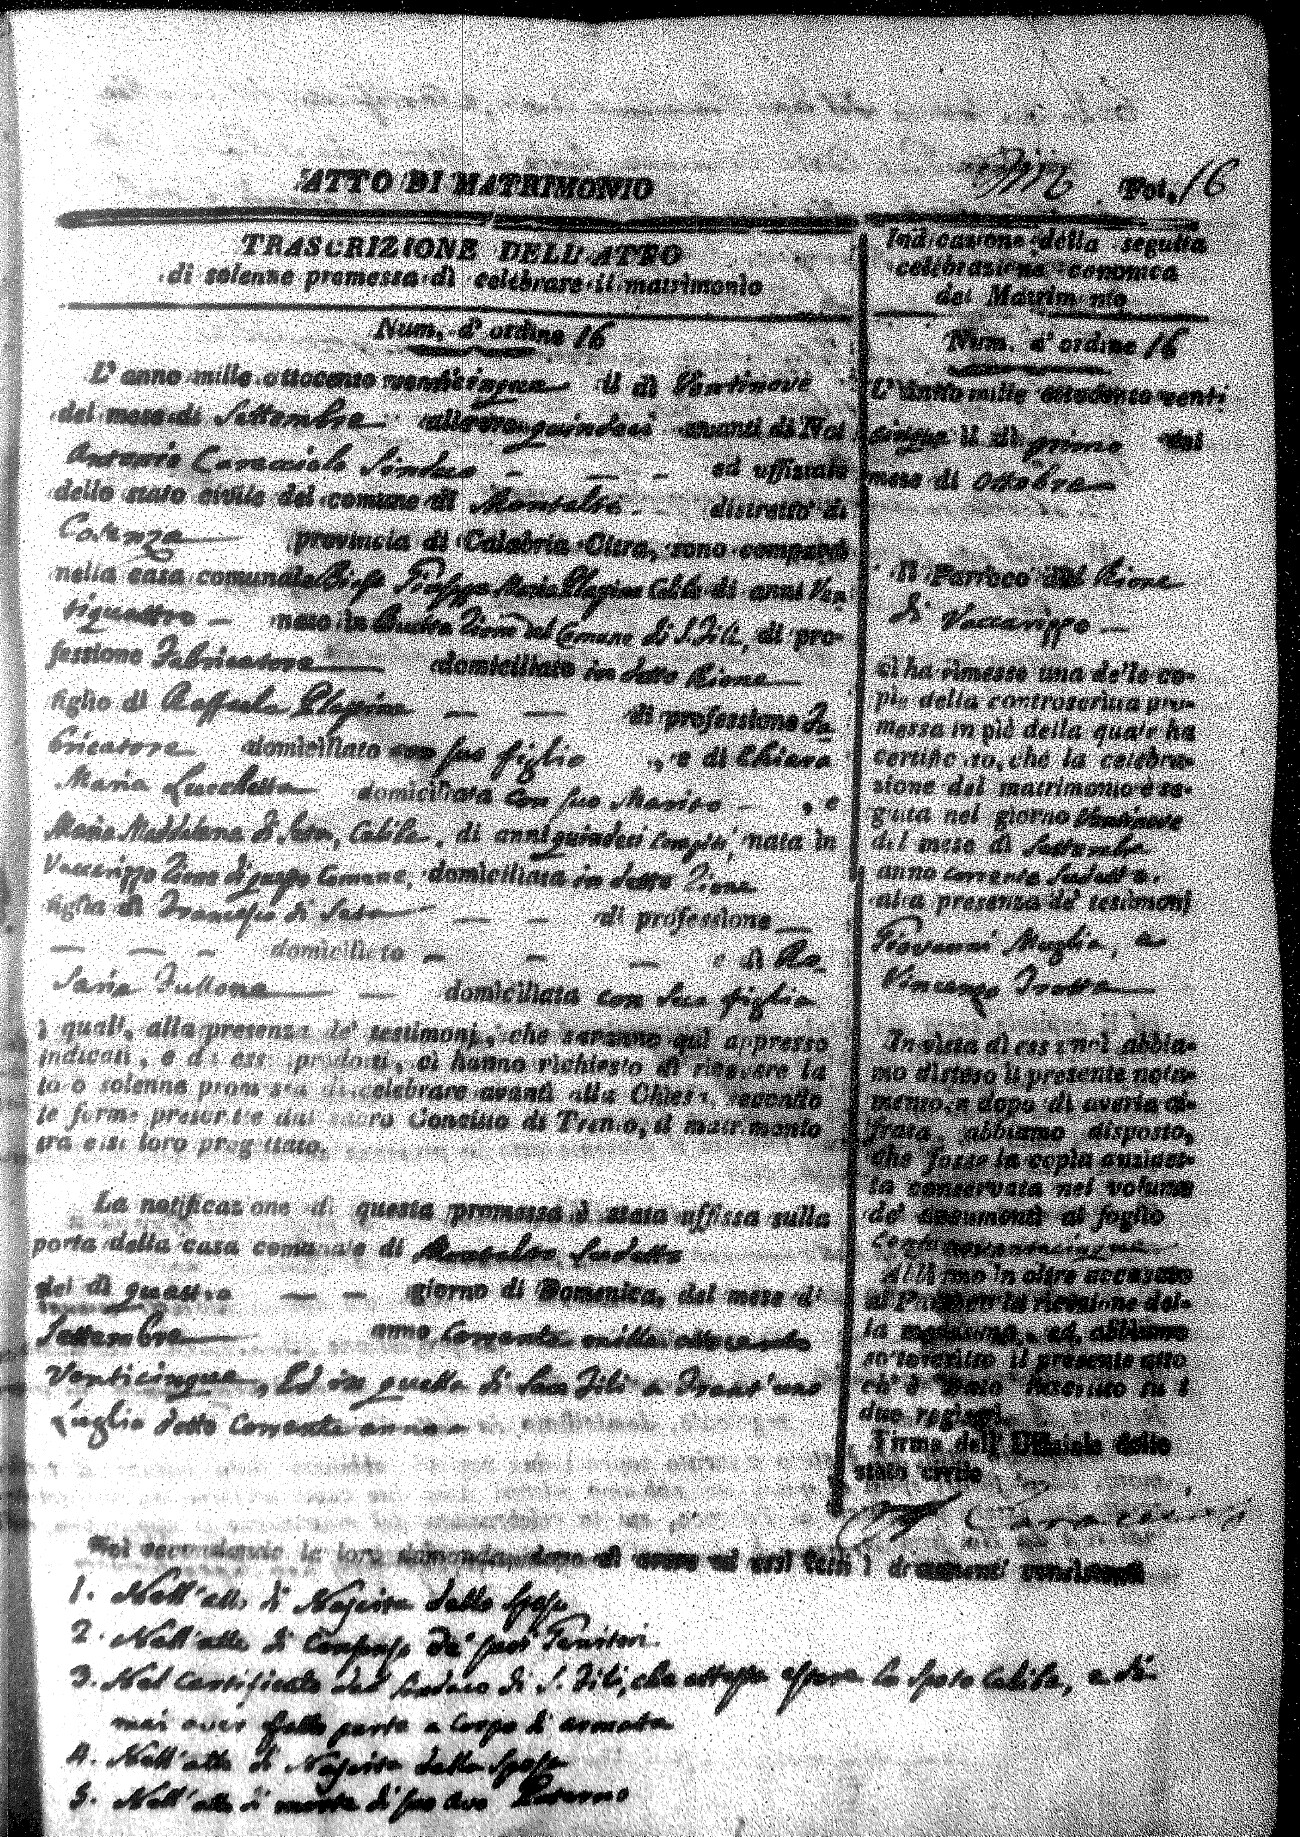 ATTO DI MATRIMONIO
Fol. 16
TRASCRIZIONE DELL'ATTO
di solenne promessa di celebrare il matrimonio
Num. d'ordine 16
L'anno mille ottocento venticinque il di Ventinove
del mese di Settembre alle ore quindeci avanti di Noi
Antonio Caracciolo Sindaco - - - ed uffiziale
dello stato civile del comune di Montalto - distretto di
Cosenza provincia di Calabria Citra, sono comparsi
nella casa comunale Giuseppe Maria Plapina Celibe di anni Ven
tiquattro - nato in del Comune di S. Fili, di pro-
fessione Fabricatore domiciliato in detto Rione
figlio di Raffaele Plapina - - di professione Fa
bricatore domiciliato con suo figlio , e di Chiara
Maria Lucchetta domiciliata con suo Marito - , e
Maria Maddalena di Seta, Celibe, di anni quindeci compiti, nata in
Vaccarizzo Rione di questo Comune, domiciliata in detto Rione
figlia di Francesco di Seta - - di professione -
- - - domiciliato - - - e di Ro
saria Fullone - domiciliata con sua figlia
i quali, alla presenza de' testimonj, che saranno quì appresso
indicati, e da essi prodotti, ci hanno richiesto di ricevere la
loro solenne promessa di celebrare avanti alla Chiesa, secondo
le forme prescritte dal sacro Concilio di Trento, il matrimonio
tra essi loro progettato.
La notificazione di questa promessa è stata affissa sulla
porta della casa comunale di Montalto suddetto
del dì quattro - - giorno di Domenica, del mese di
Settembre anno corrente mille ottocento
Venticinque, Ed in quella di San Fili a Trent'uno
Luglio detto Corrente anno
Indicazione della seguita
celebrazione canonica
del Matrimonio
Num. d'ordine 16
L'anno mille ottocento venti
cinque il dì primo del
mese di Ottobre
Il Parroco del Rione
di Vaccarizzo -
ci ha rimesso una delle co-
pie della controscritta pro-
messa in piè della quale ha
certificato, che la celebra-
zione del matrimonio è se-
guita nel giorno Ventinove
del mese di Settembre
anno corrente suddetto.
alla presenza de' testimonj
Giovanni Moglia, e
Vincenzo Trotta
In vista di essa noi abbia-
mo disteso il presente nota-
mento, e dopo di averla ci-
frata, abbiamo disposto,
che fosse la copia anzidet-
ta conservata nel volume
de' documenti al foglio
Abbiamo in oltre accusato
al Parroco la ricezione del-
la medesima, ed abbiamo
sottoscritto il presente atto
ch'è stato inscritto su i
due registri.
Firma dell'Uffiziale dello
stato civile
Caracciolo
Noi secondando la loro domanda, dopo di avere ad essi letti i documenti consistenti
1. Nell'atto di Nascita dello sposo
2. Nell'atto di Consenso de' suoi Genitori.
3. Nel Certificato del Sindaco di S. Fili, che attesta essere lo sposo Celibe, e di
mai aver fatto parte a Corpo di armata
4. Nell'atto di Nascita della sposa
5. Nell'atto di morte di suo avo Paterno